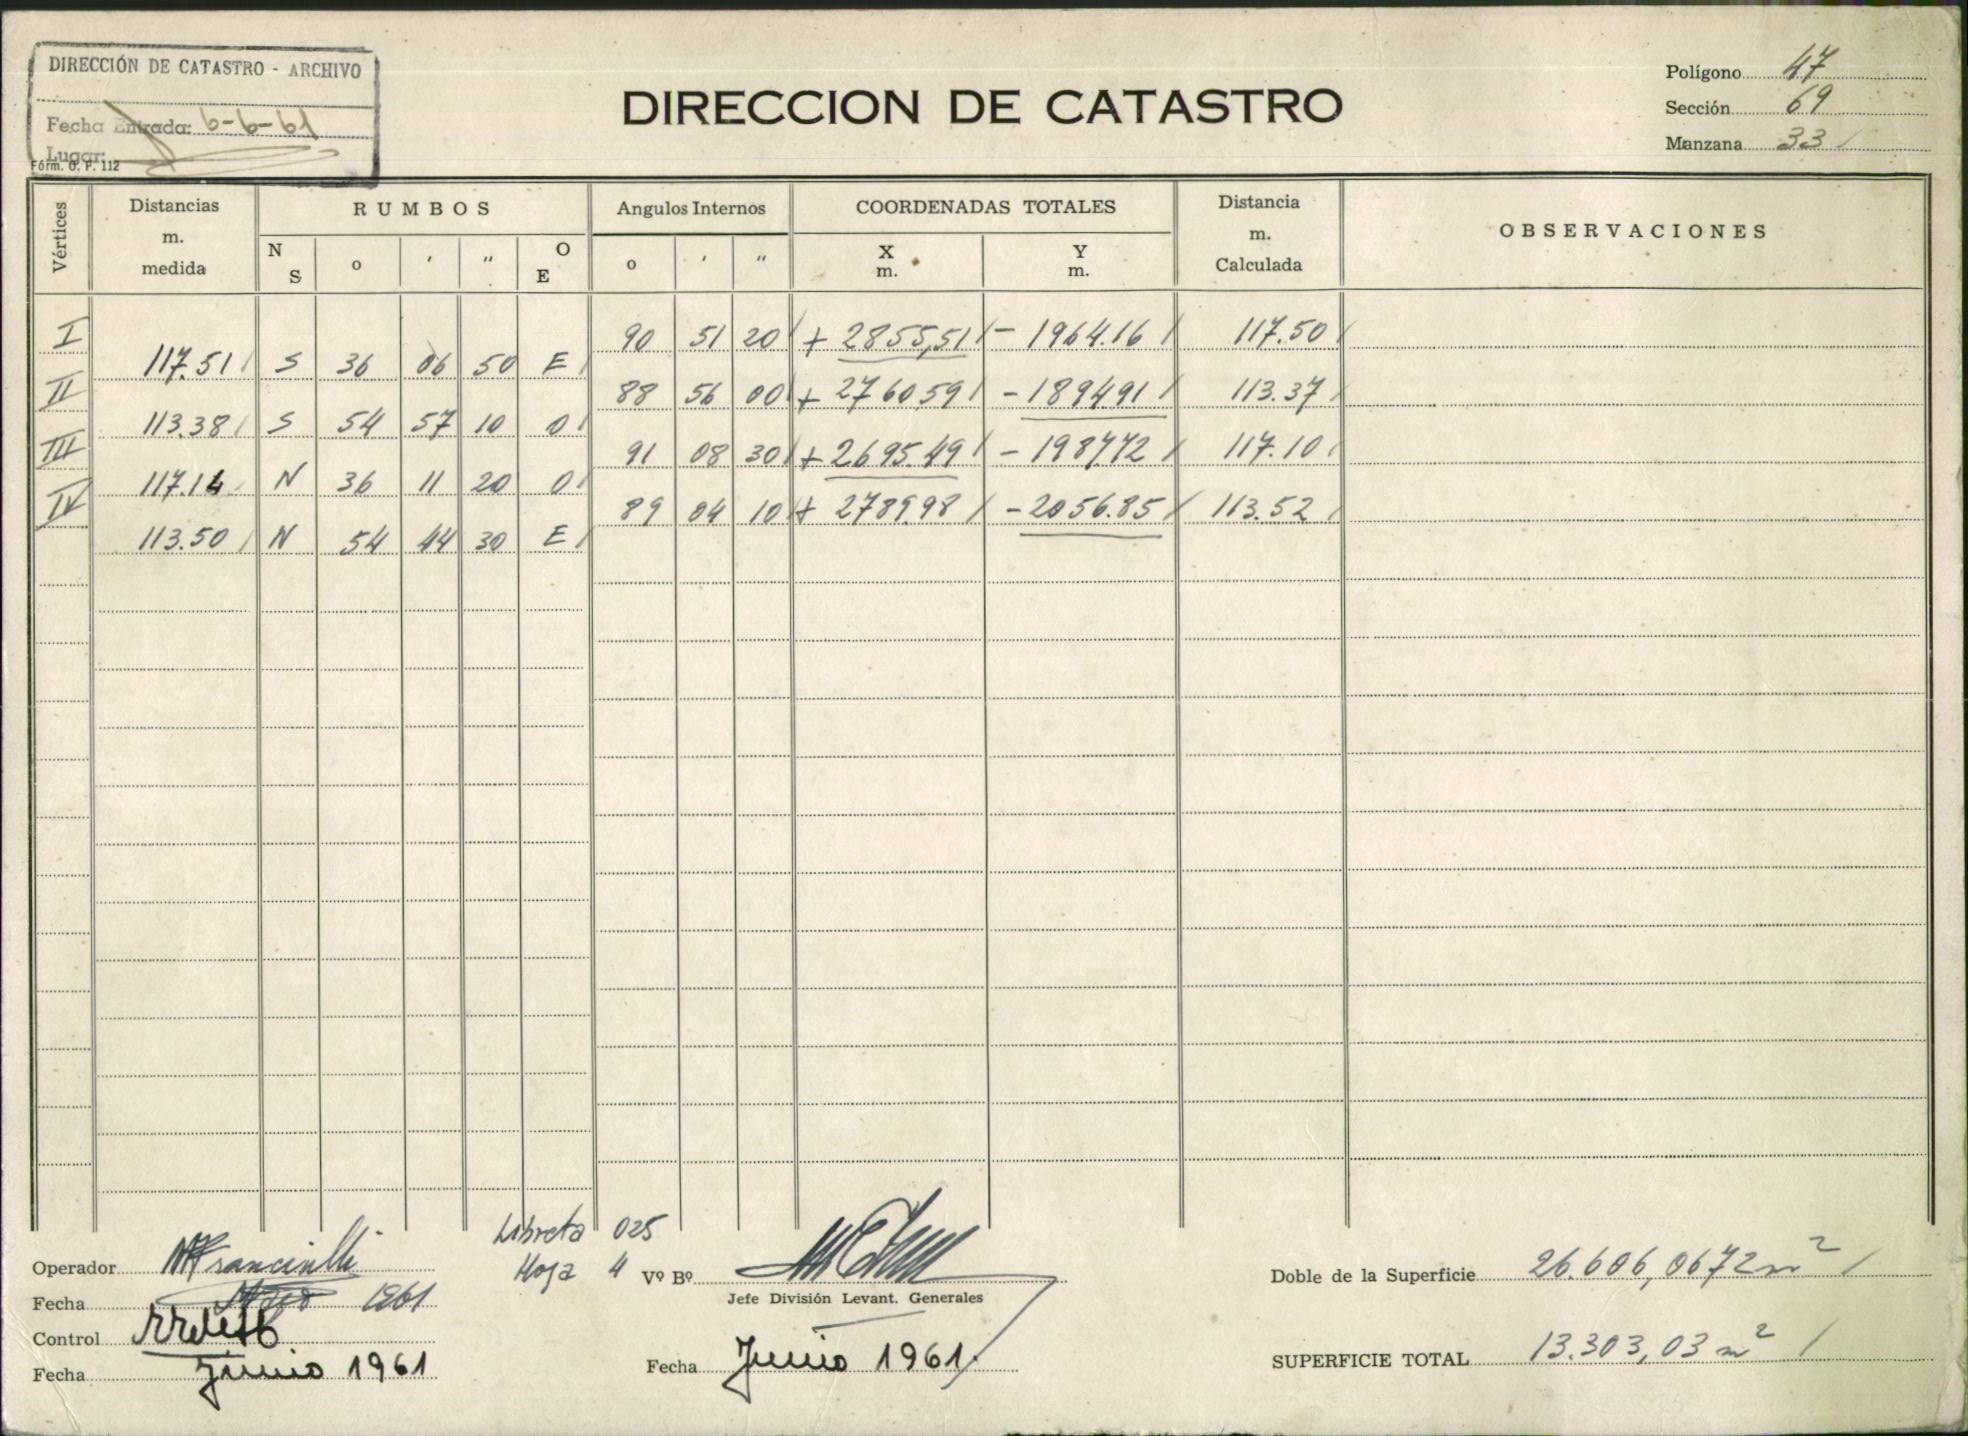 DIRECCIÓN DE CATASTRO - ARCHIVO
Fecha Entrada: 6-6-61
Lugar:
Fórm. O. P. 112
DIRECCION DE CATASTRO
Polígono 47
Sección 69
Manzana 33 /
Vértices
Distancias m. medida
RUMBOS
N S o ' " O E
Angulos Internos
o ' "
COORDENADAS TOTALES
X m. Y m.
Distancia m. Calculada
OBSERVACIONES
I 90 51 20 / + 2855,51 / - 1964.16 / 117.50 /
117.51 / S 36 06 50 E /
II 88 56 00 / + 2760.59 / - 1894.91 / 113.37 /
113.38 / S 54 57 10 O /
III 91 08 30 / + 2695.49 / - 1987.72 / 117.10 /
117.14 N 36 11 20 O /
IV 89 04 10 / + 2789.98 / - 2056.85 / 113.52 /
113.50 / N 54 44 30 E /
Libreta 025
Hoja 4
Operador
Fecha Mayo 1961
Control
Fecha Junio 1961
Vº Bº
Jefe División Levant. Generales
Fecha Junio 1961.
Doble de la Superficie 26.606,0672 m² /
SUPERFICIE TOTAL 13.303,03 m² /